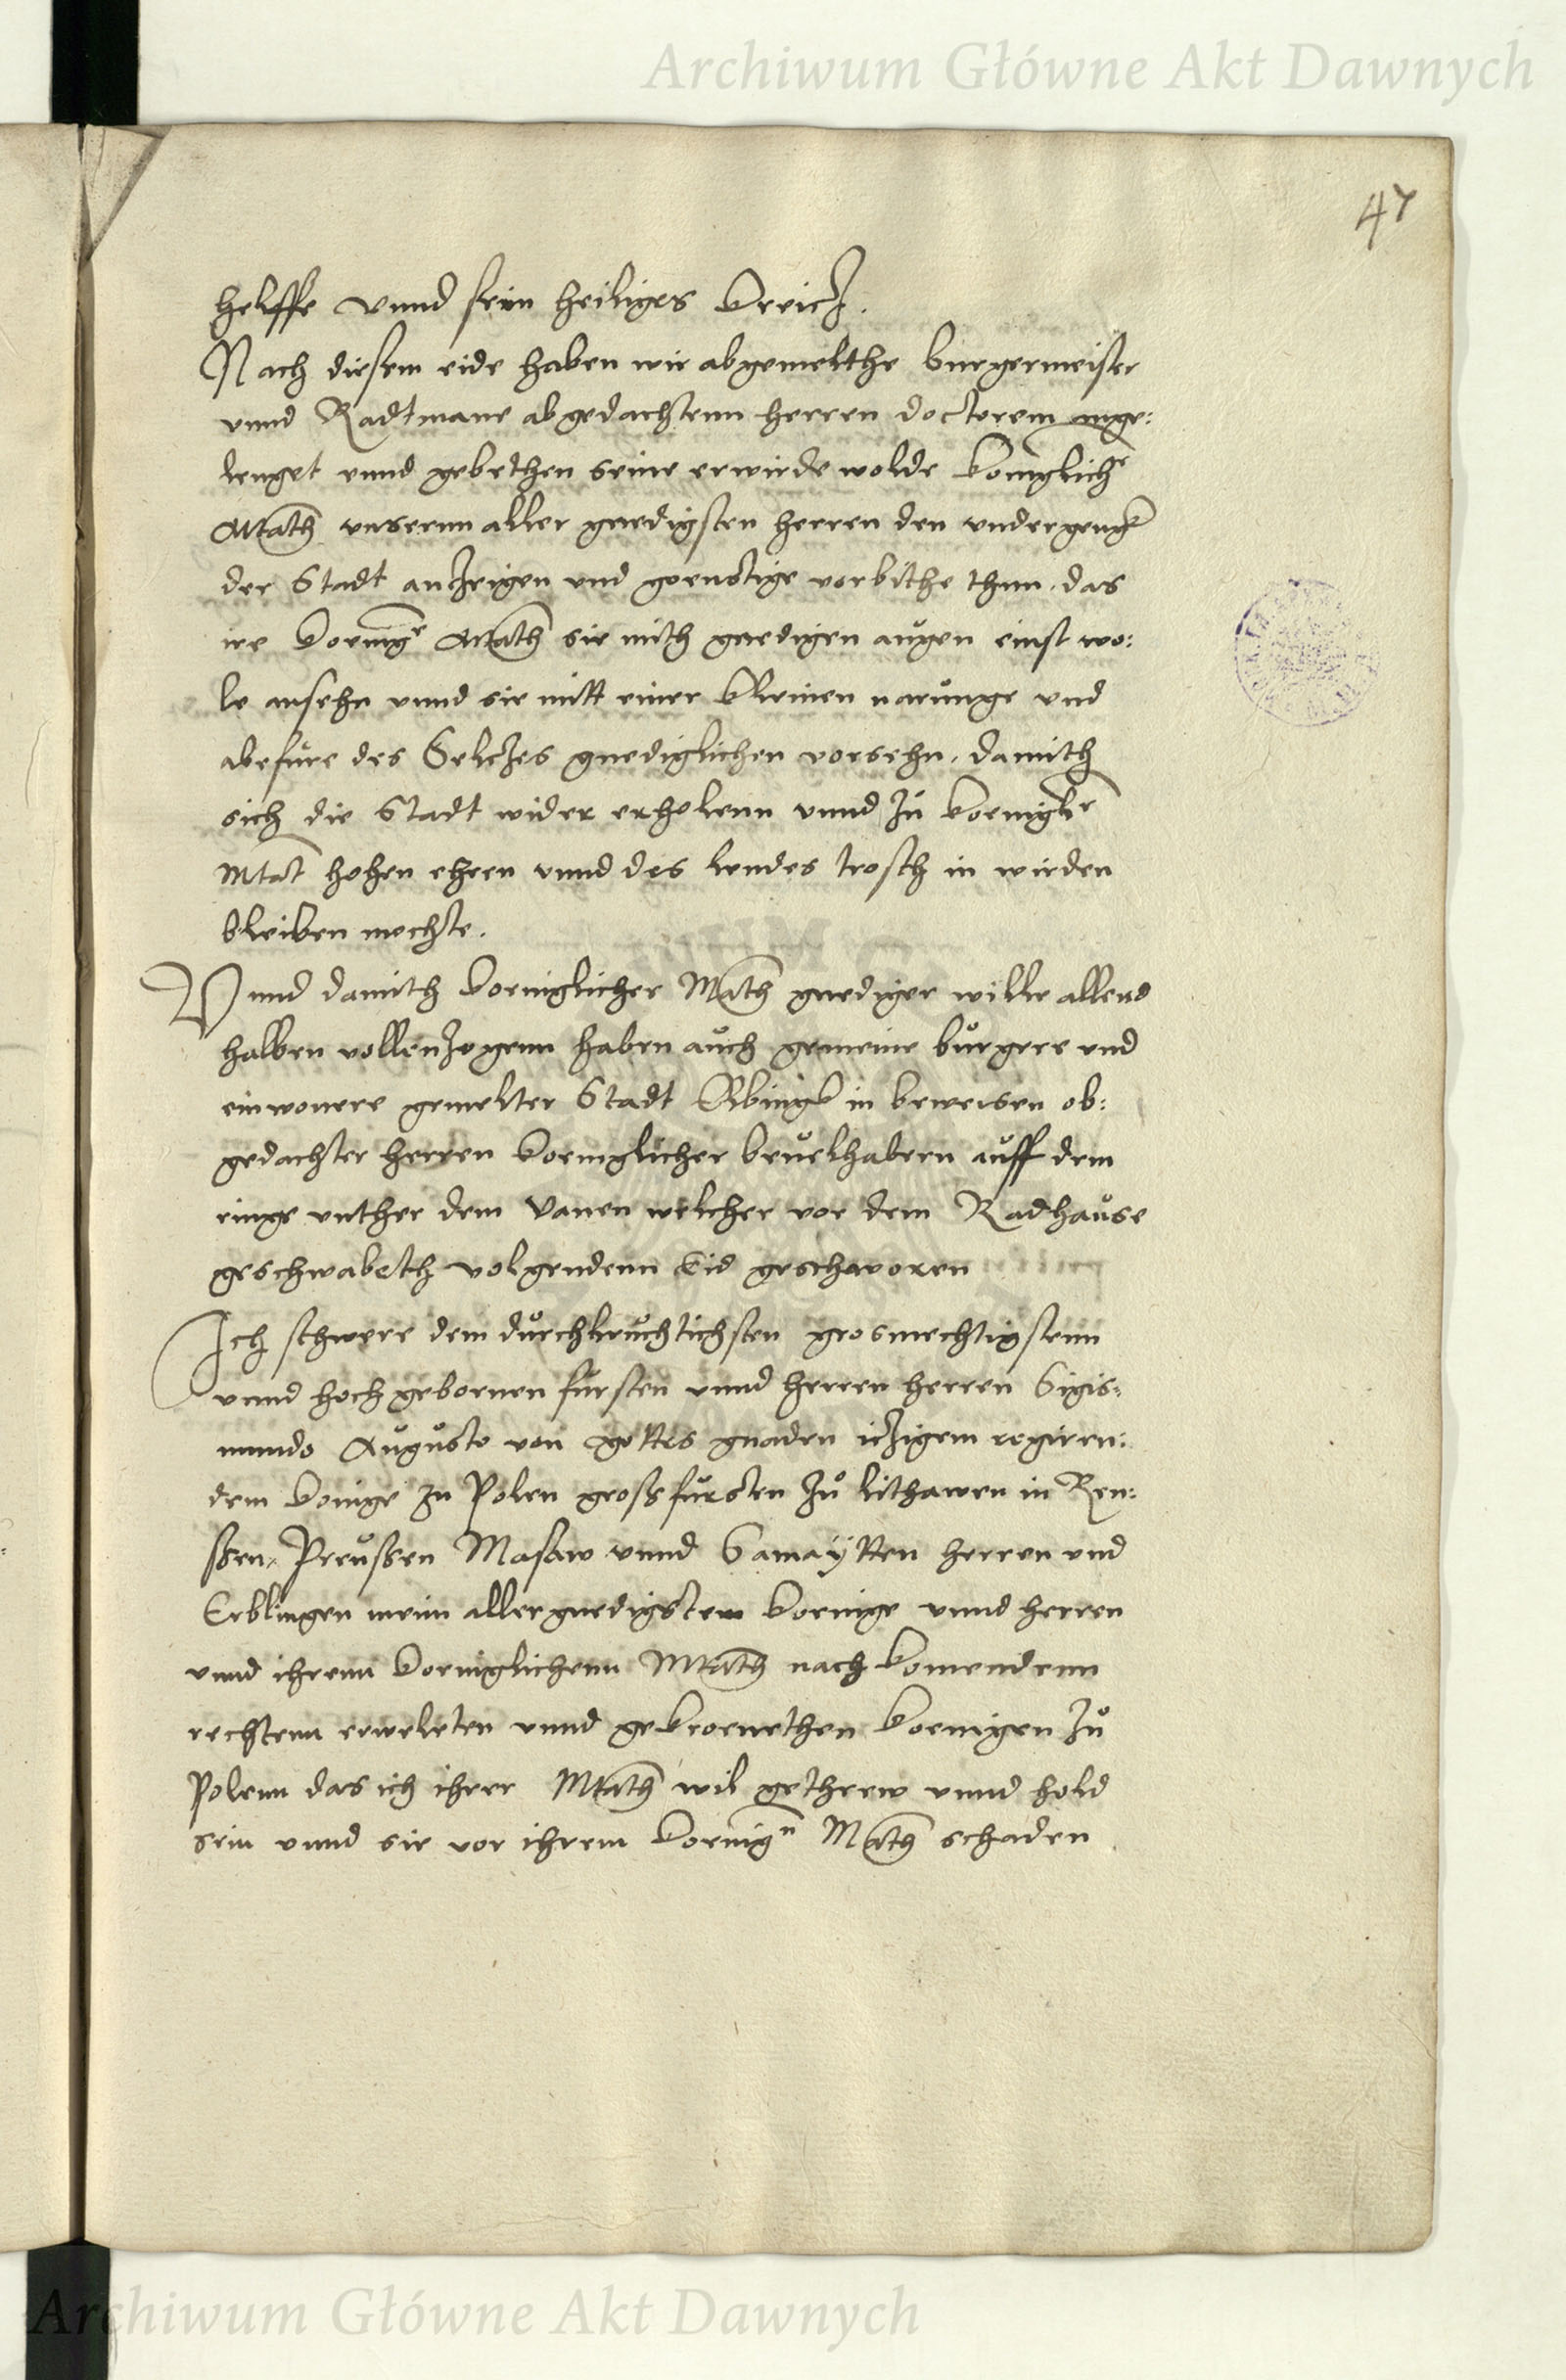 Archiwum Główne Akt Dawnych
47
helffe vnnd sein heiliges kreicz.
Nach diesem eide haben wir abgemelthe burgermeister
vnnd Radtmane abgedachtenn herren doctorem ange:
lenget vnnd gebethen seine erwirde wolde koniglich^e
Matth vnsernn aller gnedigsten herren den vndergengk
der Stadt anzeigen vnd goenstige vorbithe thun. das
ire koenig^e Matth sie mith gnedigen augen einst wo:
le ansehn vnnd sie mitt einer kleinen narunge vnd
abefure des Selczes gnediglichen vorsehn. damith
sich die Stadt wider erholenn vnnd zu koenigl^r
Mtat hohen ehren vnnd des landes trosth in wirden
bleiben mochte.
Vnnd damith koeniglicher Matth gnediger wille allend
halben vollenzogenn haben auch gemeine burgere vnd
einwonere gemelter Stadt Elbingk in beweisen ob:
gedachter herren koeniglicher beuelhabern auff dem
ringe vnther dem vanen welcher vor dem Radhause
geschwabeth volgendenn Eid geschworen
Ich schwere dem durchleuchtichsten grosmechtigstenn
vnnd hochgebornen fursten vnnd herren herren Sigis:
mundo Augusto von gottes gnaden iczigem regiren:
dem konige zu Polen grossfursten zu lithawen in Reu:
ssen, Preussen Masaw vnnd Samaÿtten herren vnd
Erblingen meim allergnedigstem koenige vnnd herren
vnnd ihrenn koeniglichenn Mtatth nach komendenn
rechtenn erweleten vnnd gekroenethen koenigen zu
Polenn das ich ihrer Mtatth wil gethrew vnnd hold
sein vnnd sie vor ihrem koenig^n Matth schaden
Archiwum Główne Akt Dawnych